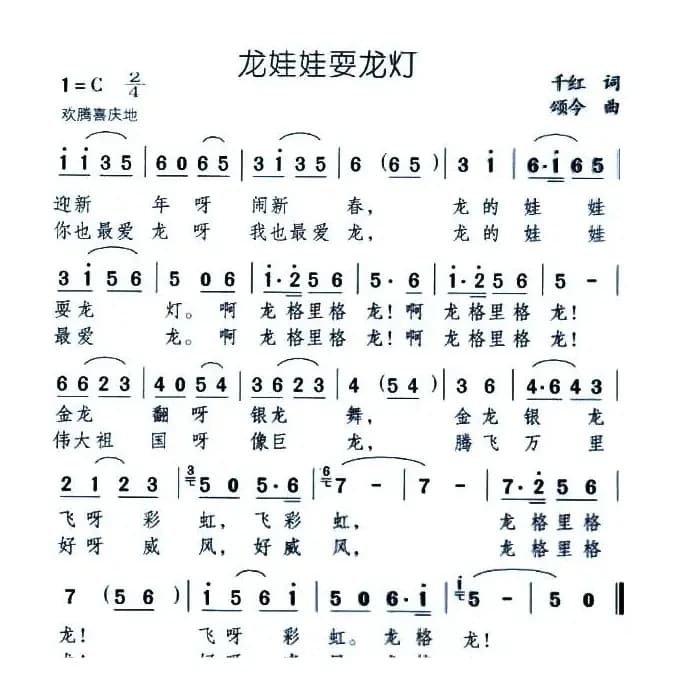 龙娃娃耍龙灯
1=C 2/4
千红 词
欢腾喜庆地
颂今 曲
i i 3 5 | 6 0 6 5 | 3 i 3 5 | 6 (6 5) | 3 i | 6·i 6 5 |
迎新 年呀 闹新 春, 龙的娃娃
你也最爱龙呀 我也最爱龙, 龙的娃娃
3 i 5 6 | 5 0 6 | i·2 5 6 | 5· 6 | i·2 5 6 | 5 - |
耍龙 灯。啊 龙格里格 龙!啊 龙格里格 龙!
最爱 龙。啊 龙格里格 龙!啊 龙格里格 龙!
6 6 2 3 | 4 0 5 4 | 3 6 2 3 | 4 (5 4) | 3 6 | 4·6 4 3 |
金龙 翻呀 银龙 舞, 金龙银龙
伟大祖 国呀 像巨 龙, 腾飞万里
2 1 2 3 | 3 5 0 5·6 | 6 7 - | 7 - | 7·2 5 6 |
飞呀彩 虹,飞彩 虹, 龙格里格
好呀威 风,好威 风, 龙格里格
7 (5 6) | i 5 6 i | 5 0 6·i | i 5 - | 5 0 ‖
龙! 飞呀彩 虹。龙格 龙!